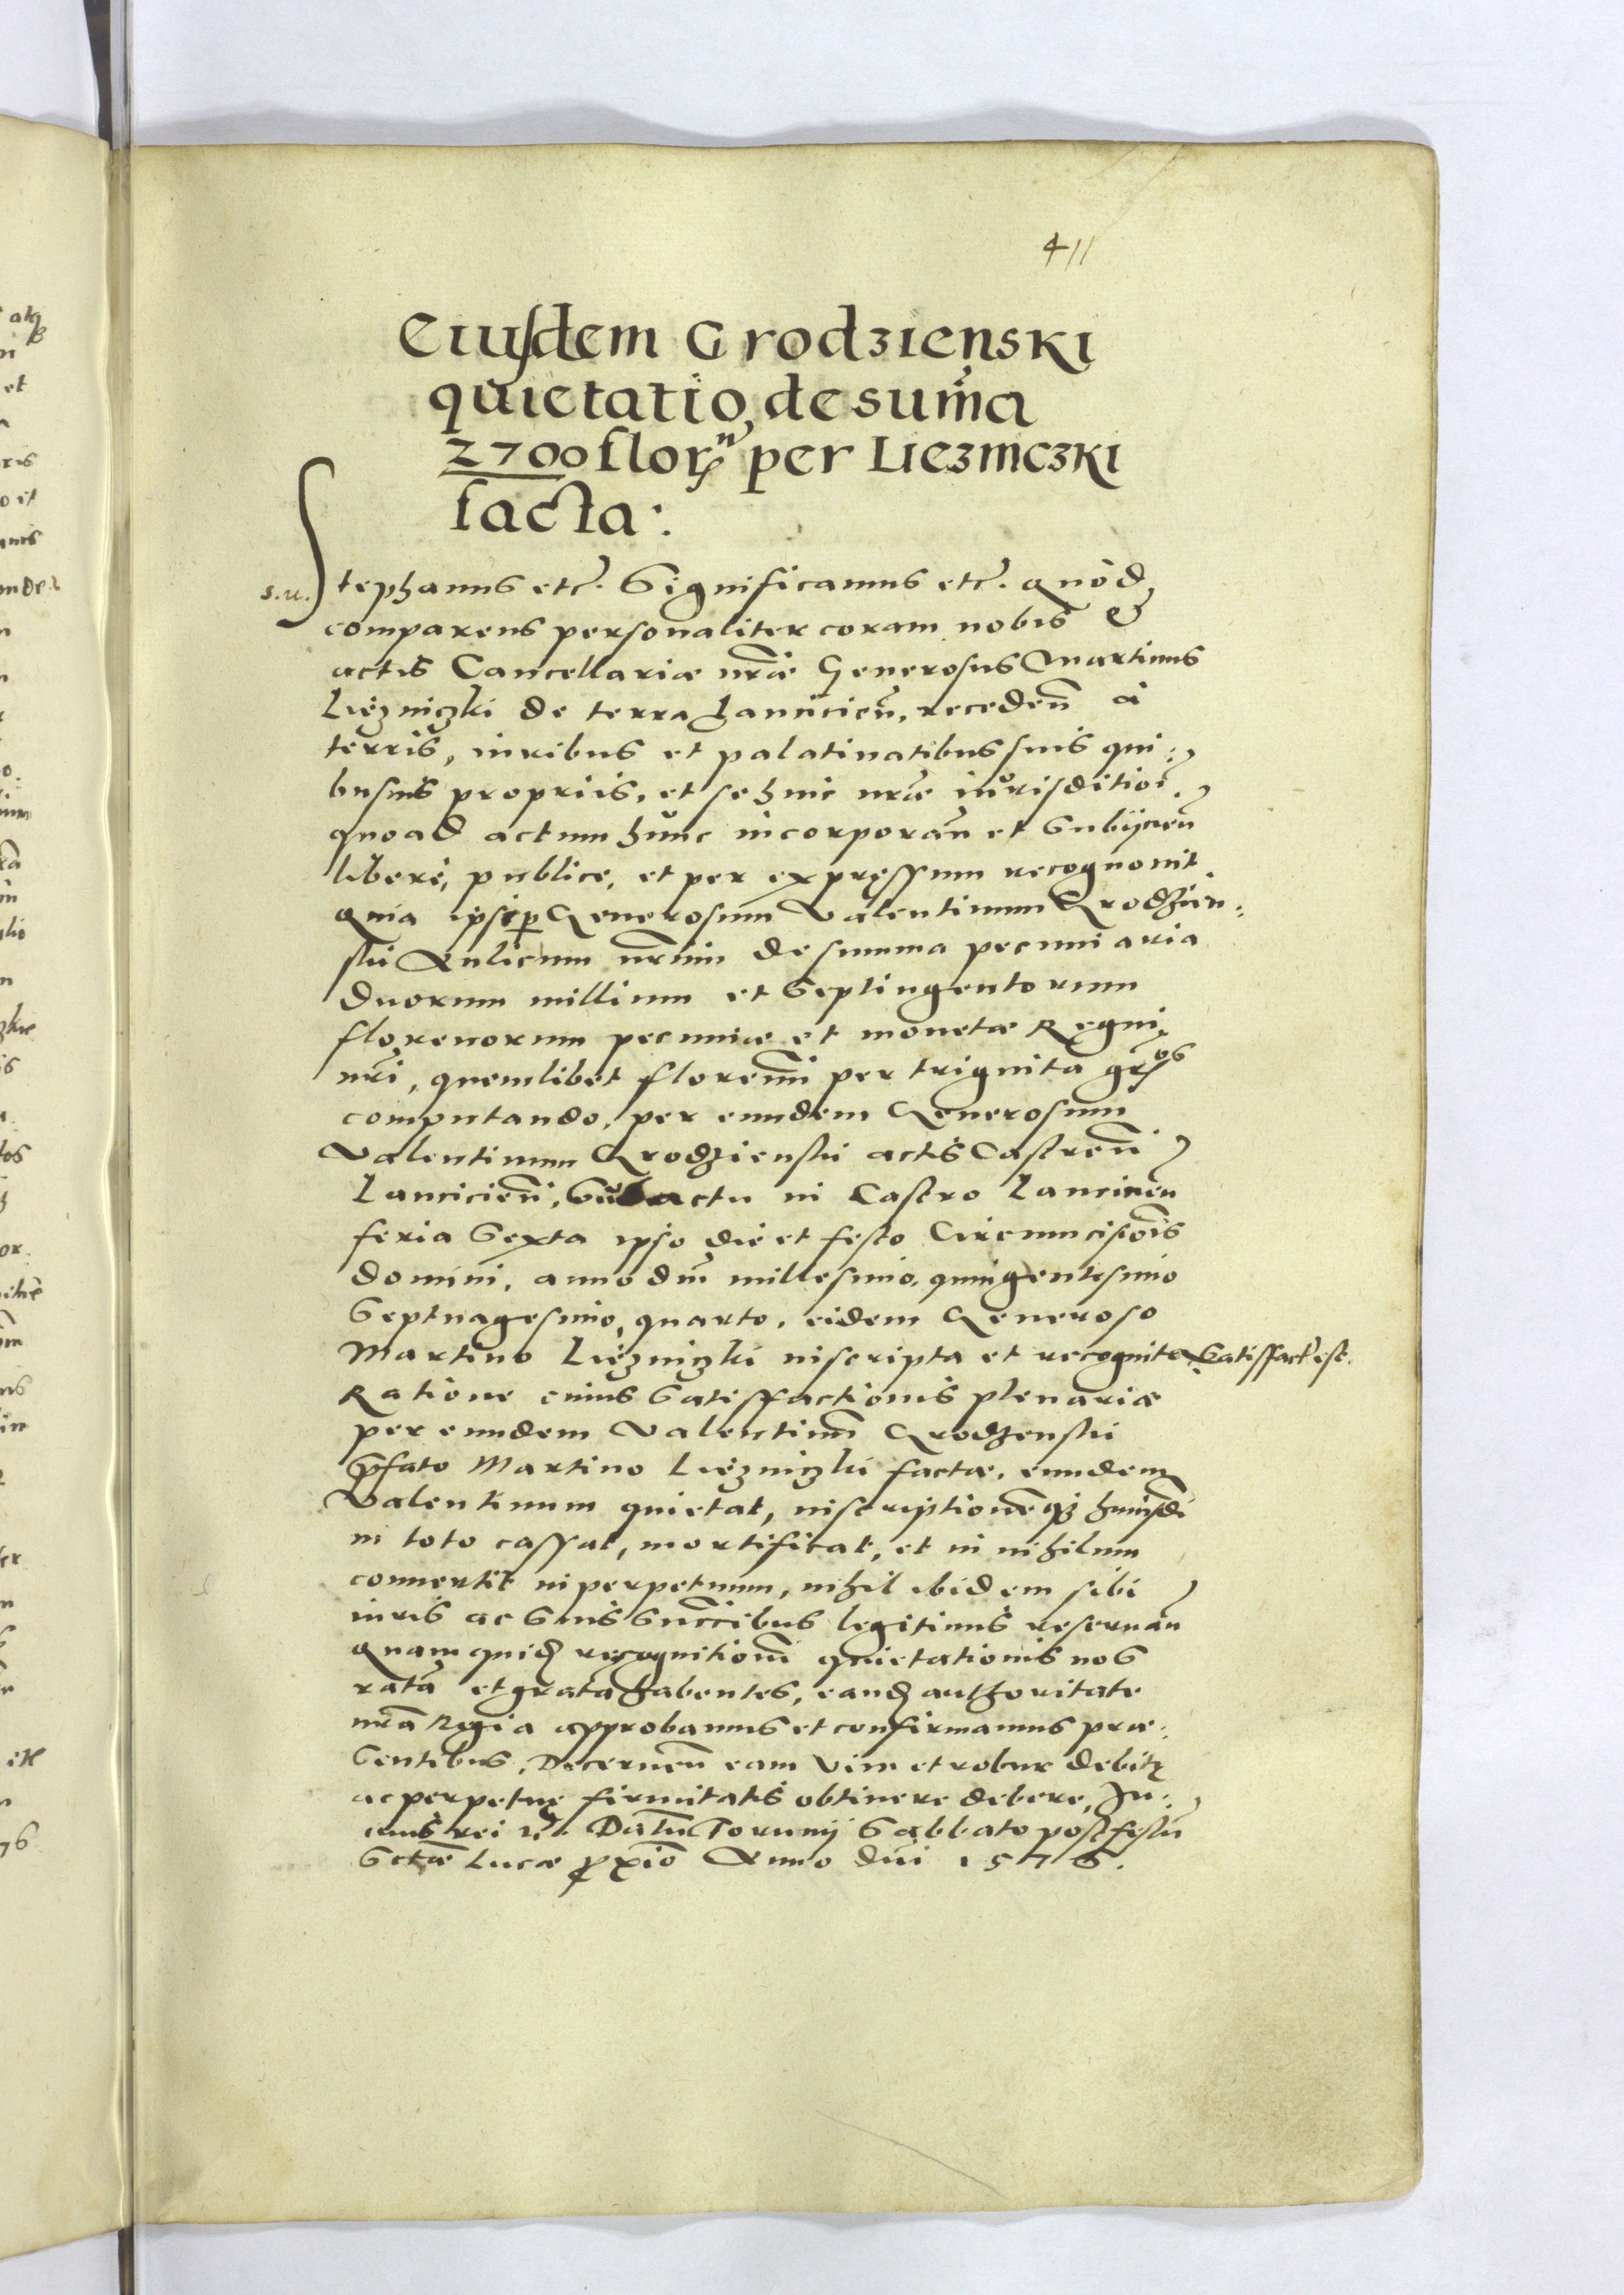 411
Eiusdem Grodzienski
quietatio de sum̄a
2700 florꝝ per Liezniczki
facta:
s.u. Stephanus etc. Significamus etc. quòd
comparens personaliter coram nobis &
actis Cancellariæ nr̄æ Generosus Martinus
Liezniczki de terra Lanicien̄, receden̄ à
terris, iuribus et palatinatibus suis qui:
busuis propriis, et se huic nr̄æ iurisditioī
quoad actum hunc incorporan̄ et subijcien̄
liberè, publice, et per expressum recognouit.
quia ipse Generosum Valentinum Grodzien:
ski Aulicum nr̄um de summa pecuniaria
duorum millium et septingentorum
florenorum pecuniæ et monetæ Regni
nr̄i, quemlibet floren̄ per triginta gros
computando, per eundem Generosum
Valentinum Grodzienski actis Castren̄
Lancicien̄, sub actu in Castro Lancicien̄
feria sexta ipso die et festo Circumcisiōis
domini, anno dn̄i millesimo, quingentesimo
septuagesimo, quarto, eidem Generoso
Martino Liezniczki inscripta et recognita satisffact est.
Ratione cuius satisffactionis plenariæ
per eundem Valentinū Grodzenski
p̄fato Martino Liezniczki factæ, eundem
Valentinum quietat, inscriptionēqꝫ huiusdi
in toto cassat, mortificat, et in nihilum
conuertit in perpetuum, nihil ibidem sibi
iuris ac suis succ̄ibus legitimis reseruan̄
quam quid recognitionē quietationis nos
ratā et gratā habentes, eand authoritate
nr̄a Regia approbamus et confirmamus præ:
sentibus, Decernen̄ eam vim et robur debitę
ac perpetuę firmitatis obtinere debere, In
cuius rei Datū Torunij Sabbato post festū
Sctæ Lucæ p̄xiō Anno dn̄i 1576.